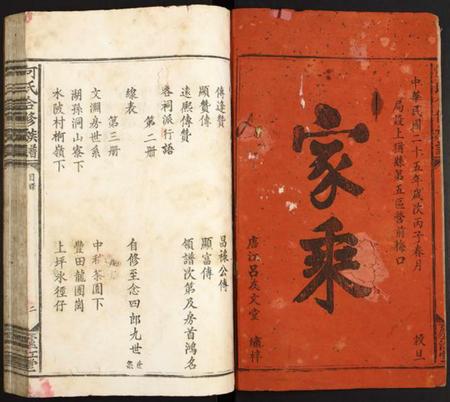 中華民國二十五年歲次丙子春月
局設上猶縣第五區營前梅口
穀旦
家乘
廬江呂友文堂 繡梓
傳達贊
昌裱公傳
顯贊傳
顯富傳
遠熙傳贊
領譜次第及房首鴻名
各祠派行語
第二册
線表
自修至念四郎九世
第三册
文淵房世系
中和茶園下
湖孫洞山寮下
豐田龍圍崗
水陂村桐嶺下
上坪永徑仔
何氏合修族譜
目録
二
廬江堂